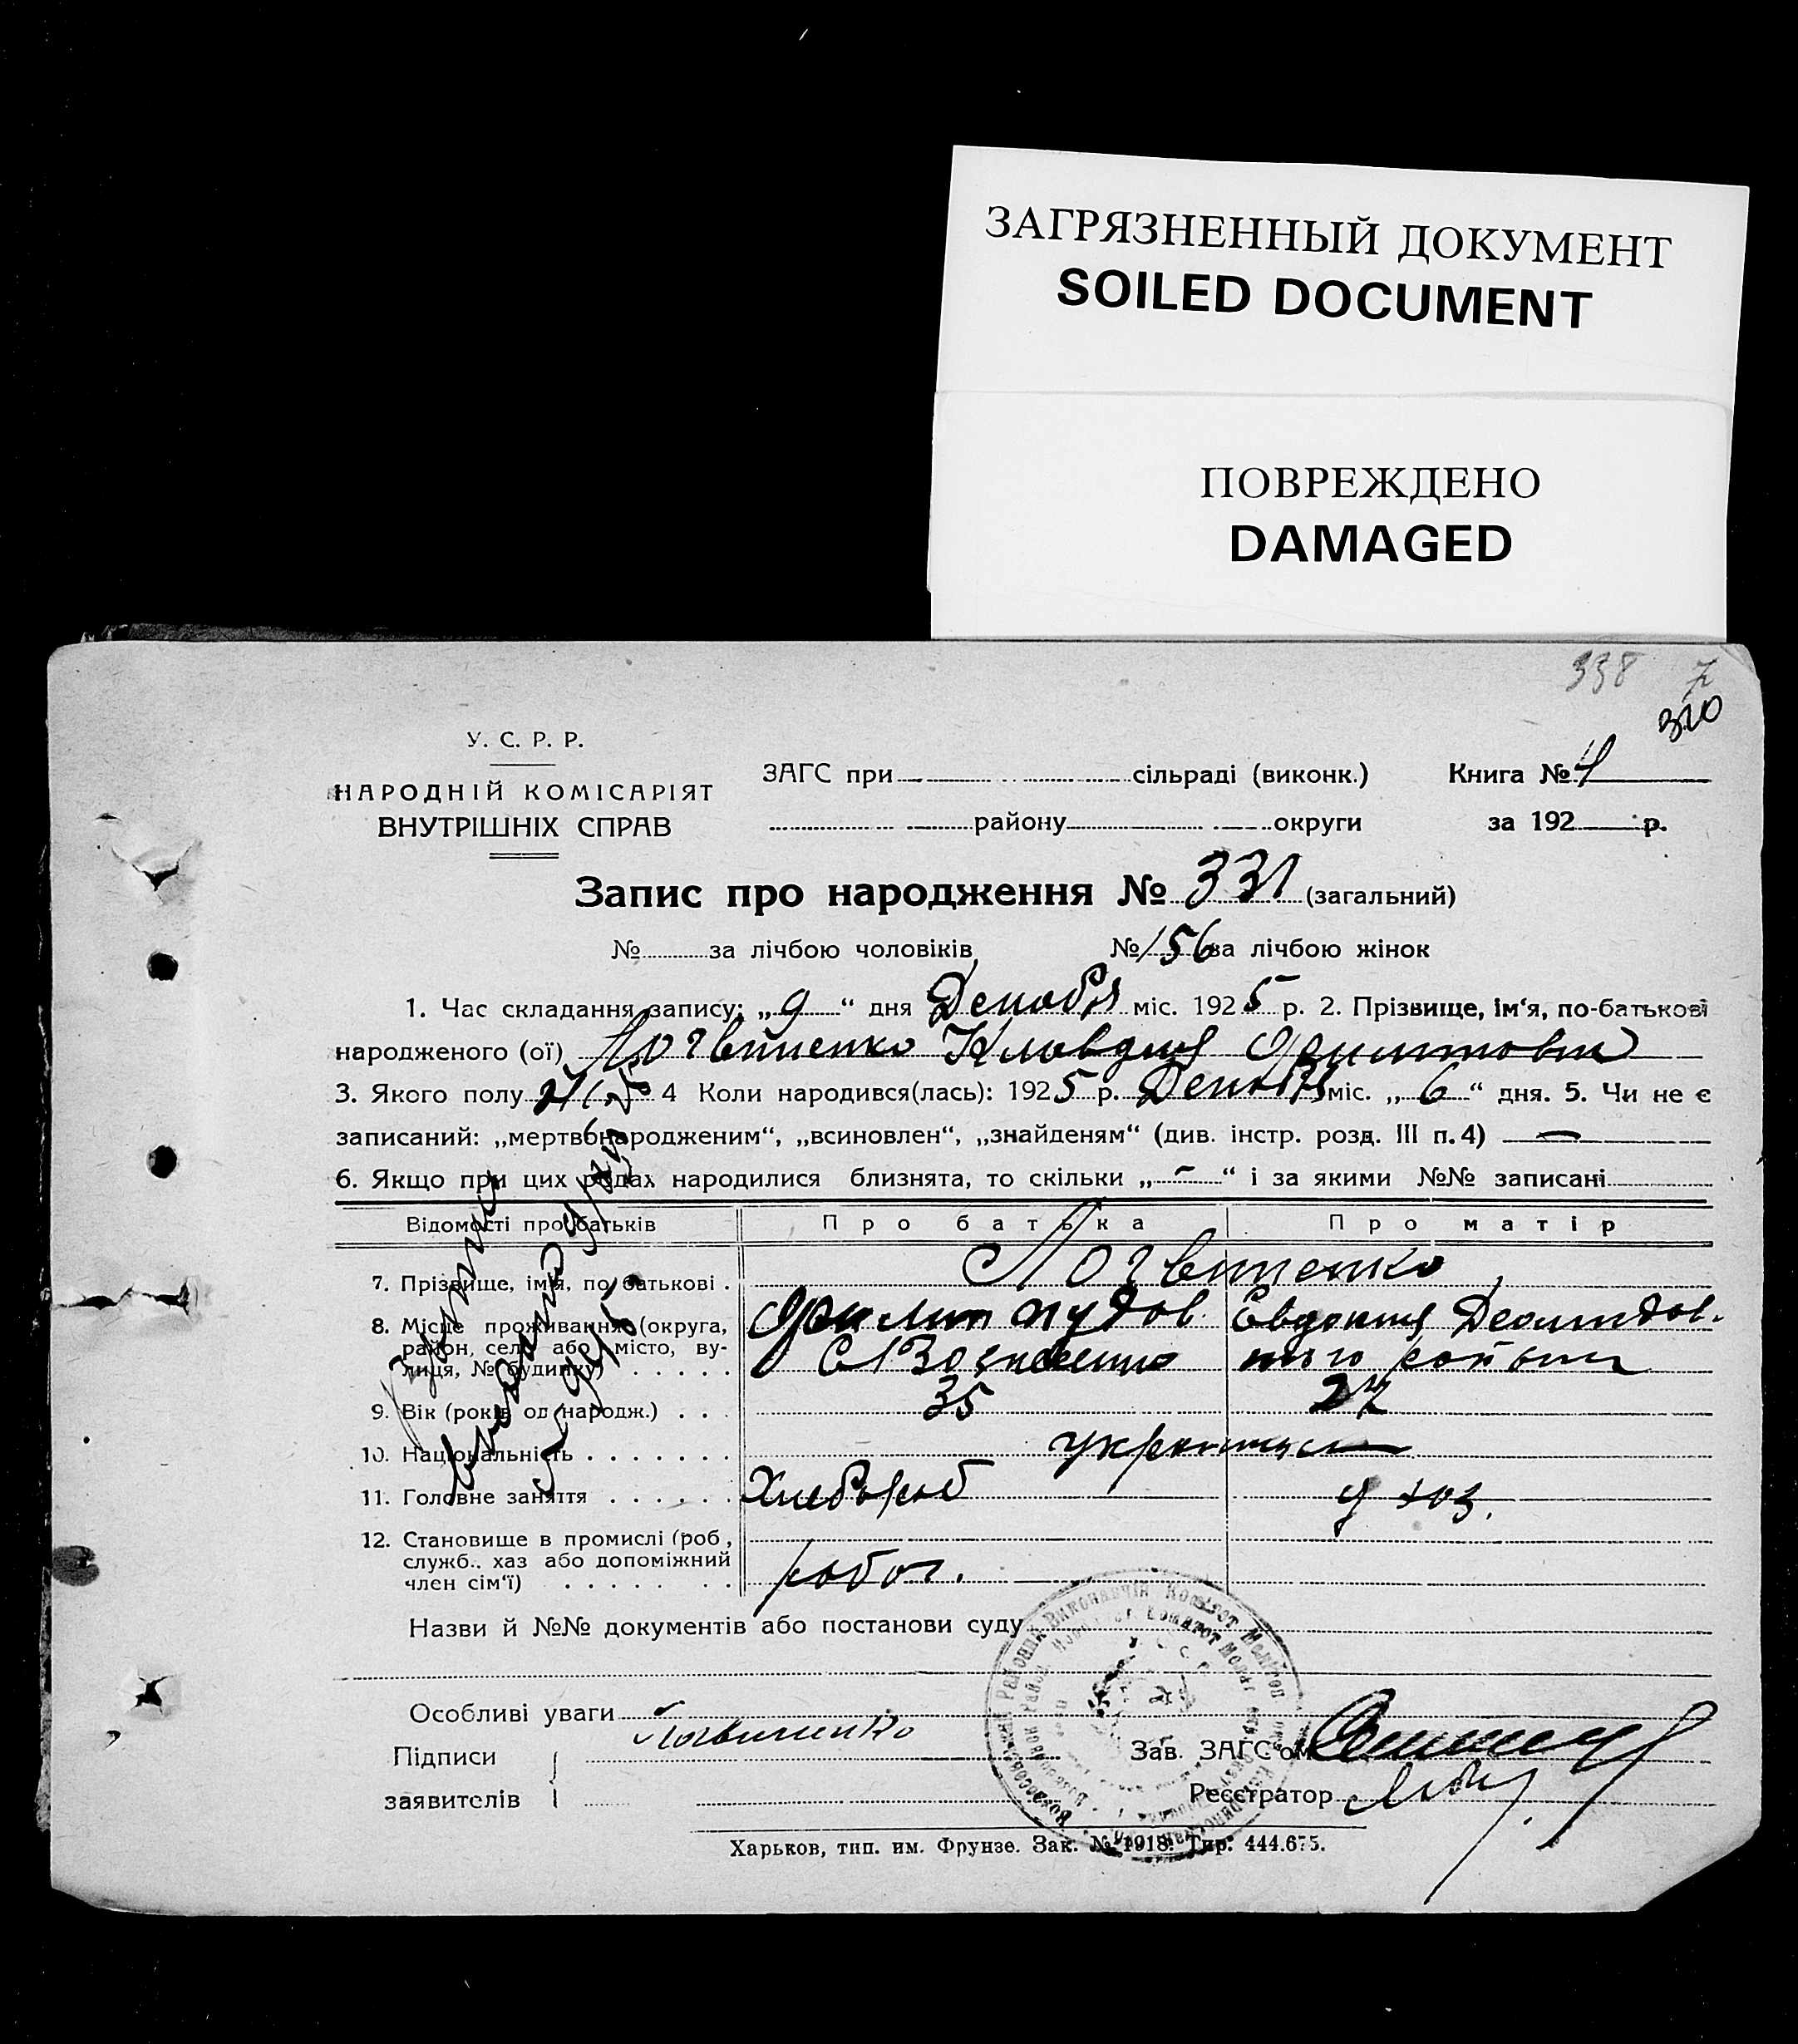 ЗАГРЯЗНЕННЫЙ ДОКУМЕНТ
SOILED DOCUMENT
ПОВРЕЖДЕНО
DAMAGED
338
320
У. С. Р. Р.
НАРОДНІЙ КОМІСАРІЯТ
ВНУТРІШНІХ СПРАВ
ЗАГС при сільраді (виконк.) Книга № 4
району округи за 192 р.
Запис про народження № 331 (загальний)
№ за лічбою чоловіків № 156 за лічбою жінок
1. Час складання запису: „9“ дня Декабря міс. 1925 р. 2. Прізвище, ім‘я, по-батькові
народженого (ої) Логвиненко Клавдия
3. Якого полу 4 Коли народився(лась): 1925 р. Декабря міс. „6“ дня. 5. Чи не є
записаний: „мертвонародженим“, „всиновлен“, „знайденям“ (див. інстр. розд. III п. 4) —
6. Якщо при цих родах народилися близнята, то скільки „-“ і за якими №№ записані
Відомості про батьків Про батька Про матір
7. Прізвище, ім‘я, по батькові . Логвиненко
8. Місце проживання (округа, район, село або місто, вулиця, № будинку) . . . . .
Евдокия
9. Вік (років од народж.) . . . 35 27
10. Національність . . . . . . .
11. Головне заняття . . . . . . Хлебороб д хоз.
12. Становище в промислі (роб,
служб.. хаз або допоміжний
член сім‘ї) . . . . . . . робог.
Назви й №№ документів або постанови суду
Особливі уваги
Підписи Логвиненко Зав. ЗАГС‘ом
заявителів Реєстратор
Харьков, тип. им. Фрунзе. Зак. № 1918. Тир. 444.675.